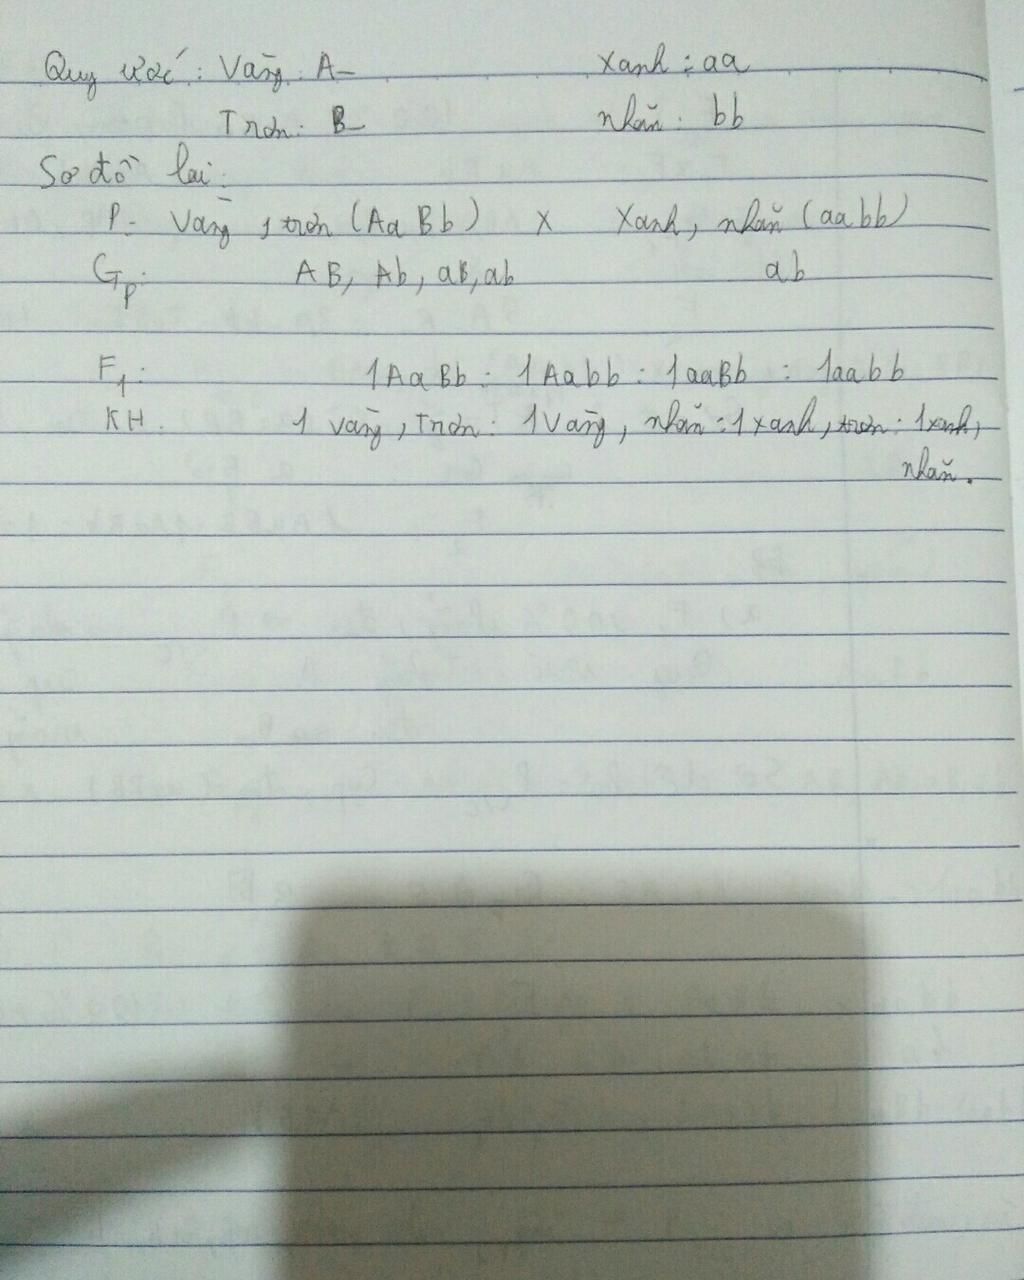 Quy ước : Vàng : A- xanh : aa
Trơn : B- nhăn : bb
Sơ đồ lai :
P : Vàng , trơn (AaBb) x Xanh, nhăn (aabb)
Gp : AB, Ab, aB, ab ab
F1 : 1AaBb : 1Aabb : 1aaBb : 1aabb
KH : 1 vàng, trơn : 1 vàng, nhăn : 1 xanh, trơn : 1 xanh,
nhăn.